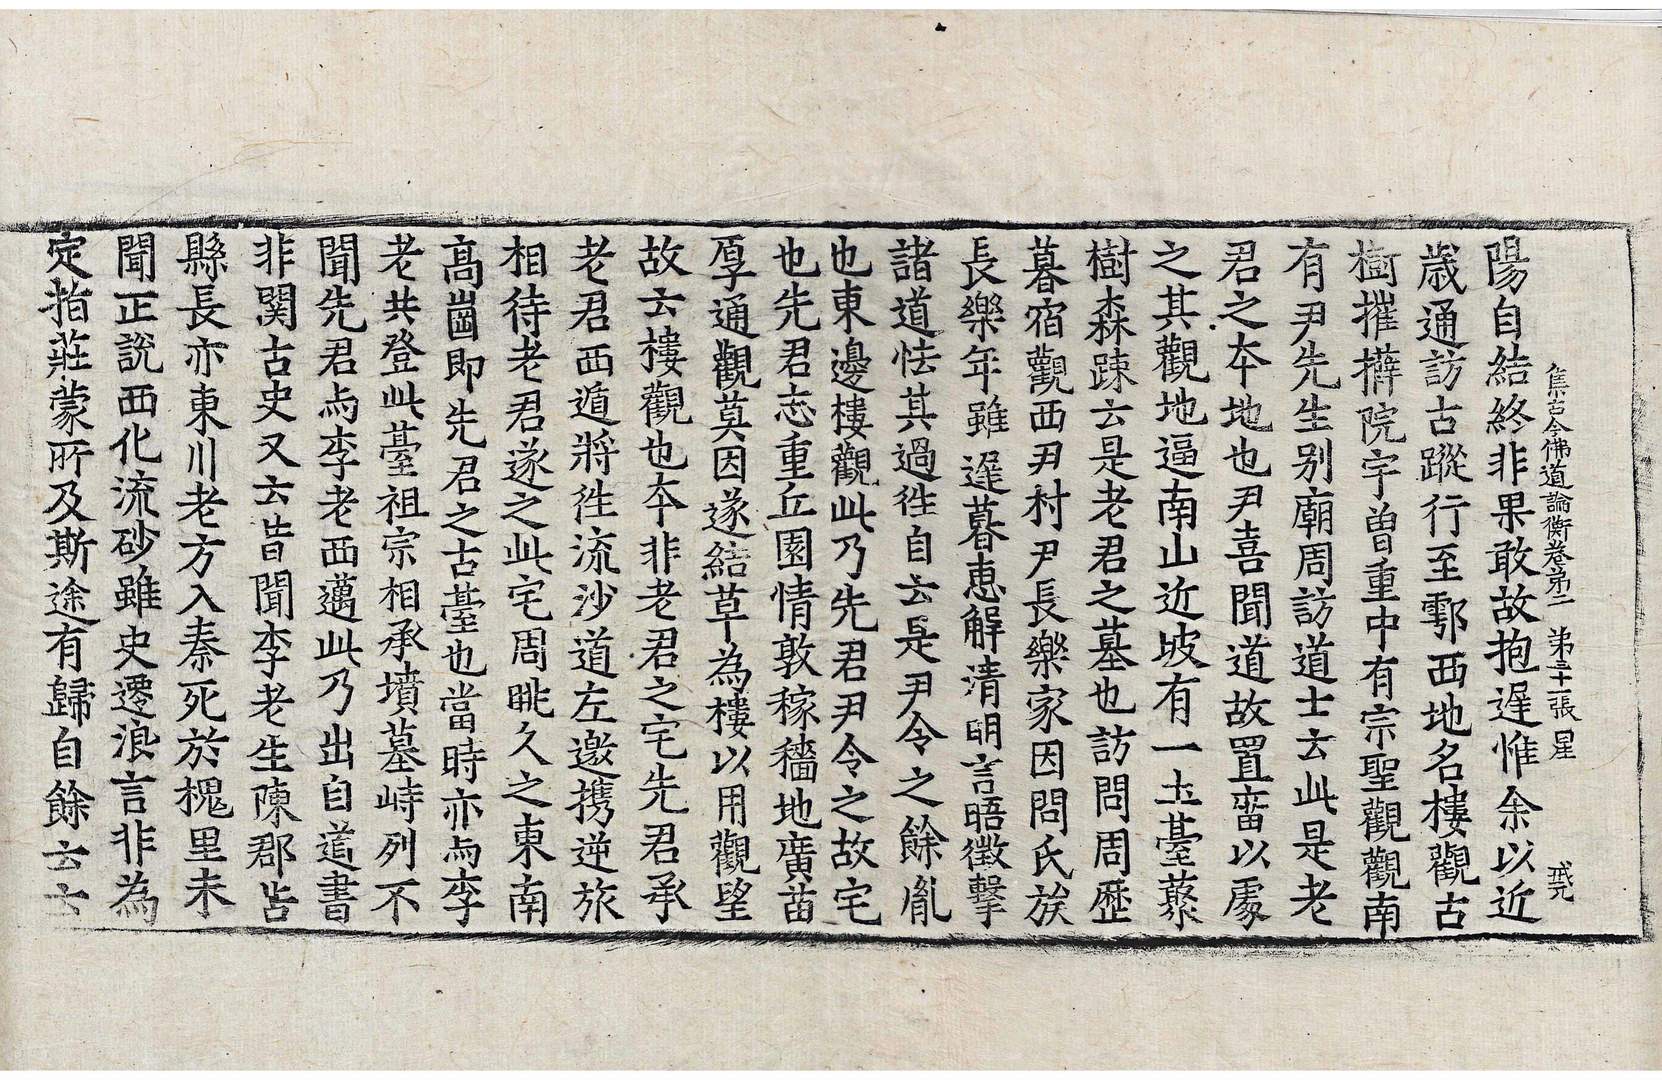 集古今佛道論衡卷第二 第三十二張 星 戒光
陽自結終非果敢故抱遲惟余以近
歲通訪古蹤行至鄠西地名樓觀古
樹摧擗院宇曾重中有宗聖觀觀南
有尹先生別廟周訪道士云此是老
君之夲地也尹喜聞道故置畱以處
之其觀地逼南山近坡有一土臺藂
樹森踈云是老君之墓也訪問周歷
暮宿觀西尹村尹長樂家因問氏族
長樂年雖遲暮惠解清明言晤徵擊
諸道恠其過徃自云是尹令之餘胤
也東邊樓觀此乃先君尹令之故宅
也先君志重丘園情敦稼穡地廣苗
厚通觀莫因遂結草為樓以用觀望
故云樓觀也夲非老君之宅先君承
老君西遁將徃流沙道左邀携逆旅
相待老君遂之此宅周眺久之東南
高崮即先君之古臺也當時亦与李
老共登此臺祖宗相承墳墓峙列不
聞先君与李老西邁此乃出自道書
非関古史又云昔聞李老生陳郡苦
縣長亦東川老方入秦死於槐里未
聞正說西化流砂雖史遷浪言非為
定指莊蒙所及斯途有歸自餘云云